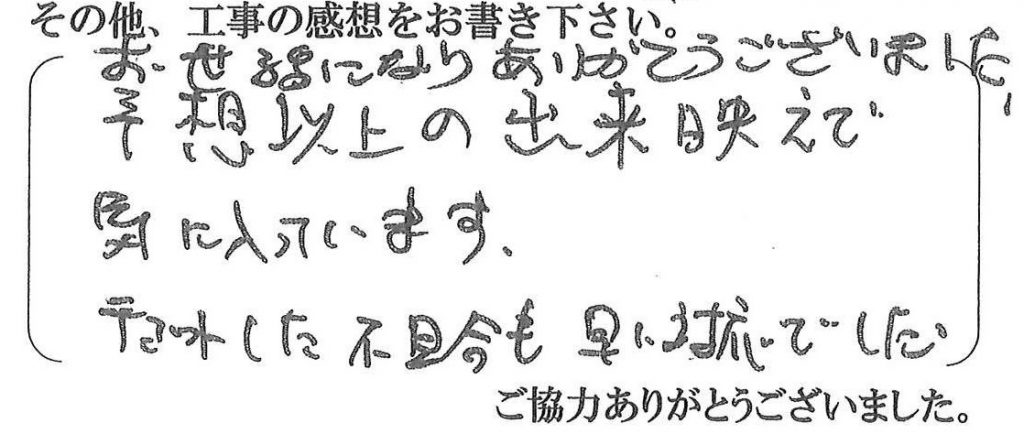 その他、工事の感想をお書き下さい。
お世話になりありがとうございました、
予想以上の出来映えで
気に入っています。
した不具合も 早い対応でした
ご協力ありがとうございました。